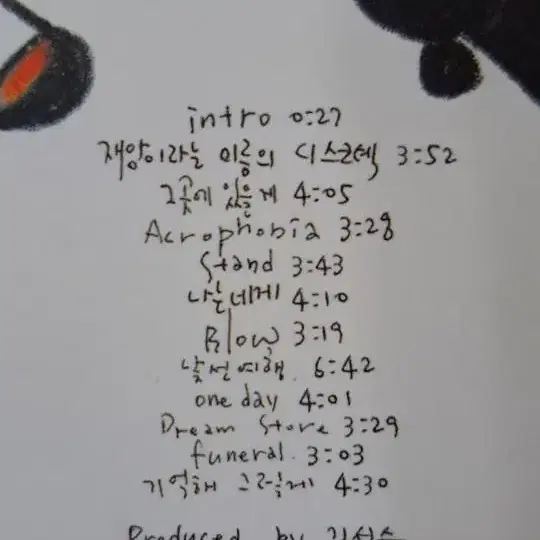 intro 0:27
재앙이라는 이름의 디스코텍 3:52
그곳에 있을게 4:05
Acrophobia 3:28
Stand 3:43
나는 네게 4:10
Blow 3:19
낯선 여행. 6:42
one day 4:01
Dream Store 3:29
funeral. 3:03
기억해 그리움에게 4:30
Produced by